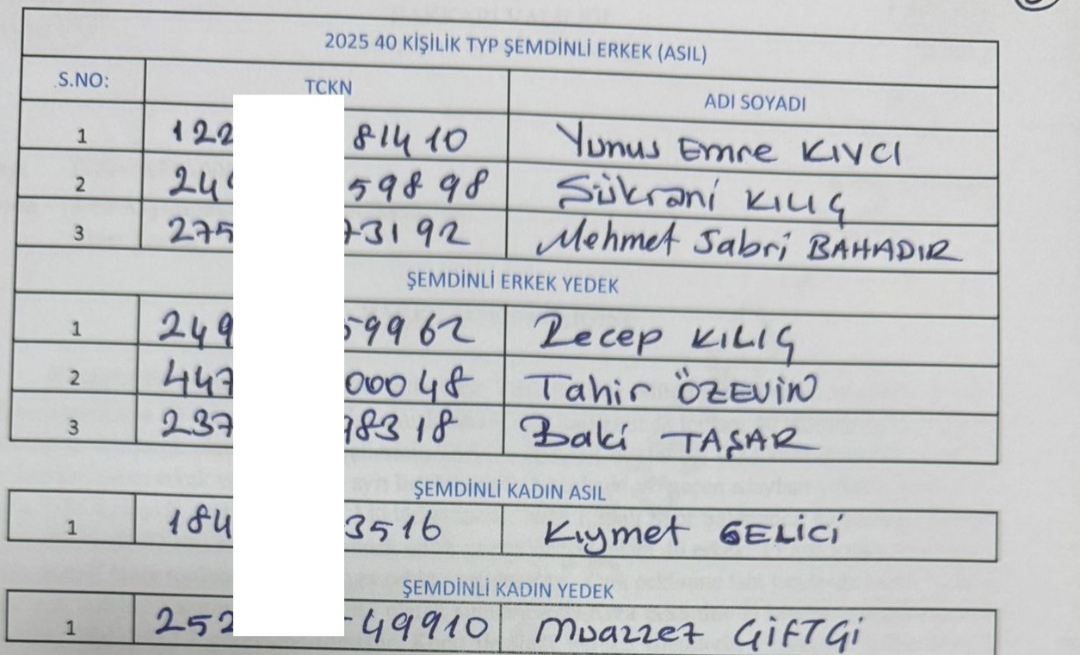 2025 40 KİŞİLİK TYP ŞEMDİNLİ ERKEK (ASIL)
S.NO: TCKN ADI SOYADI
1 122 81410 Yunus Emre KIVCI
2 24 598 98 Şükrani KILIÇ
3 275 73192 Mehmet Sabri BAHADIR
ŞEMDİNLİ ERKEK YEDEK
1 249 59962 Recep KILIÇ
2 447 000 48 Tahir ÖZEVİN
3 237 98318 Baki TAŞAR
ŞEMDİNLİ KADIN ASIL
1 184 3516 Kıymet GELİCİ
ŞEMDİNLİ KADIN YEDEK
1 252 49910 Muazzez ÇİFTÇİ